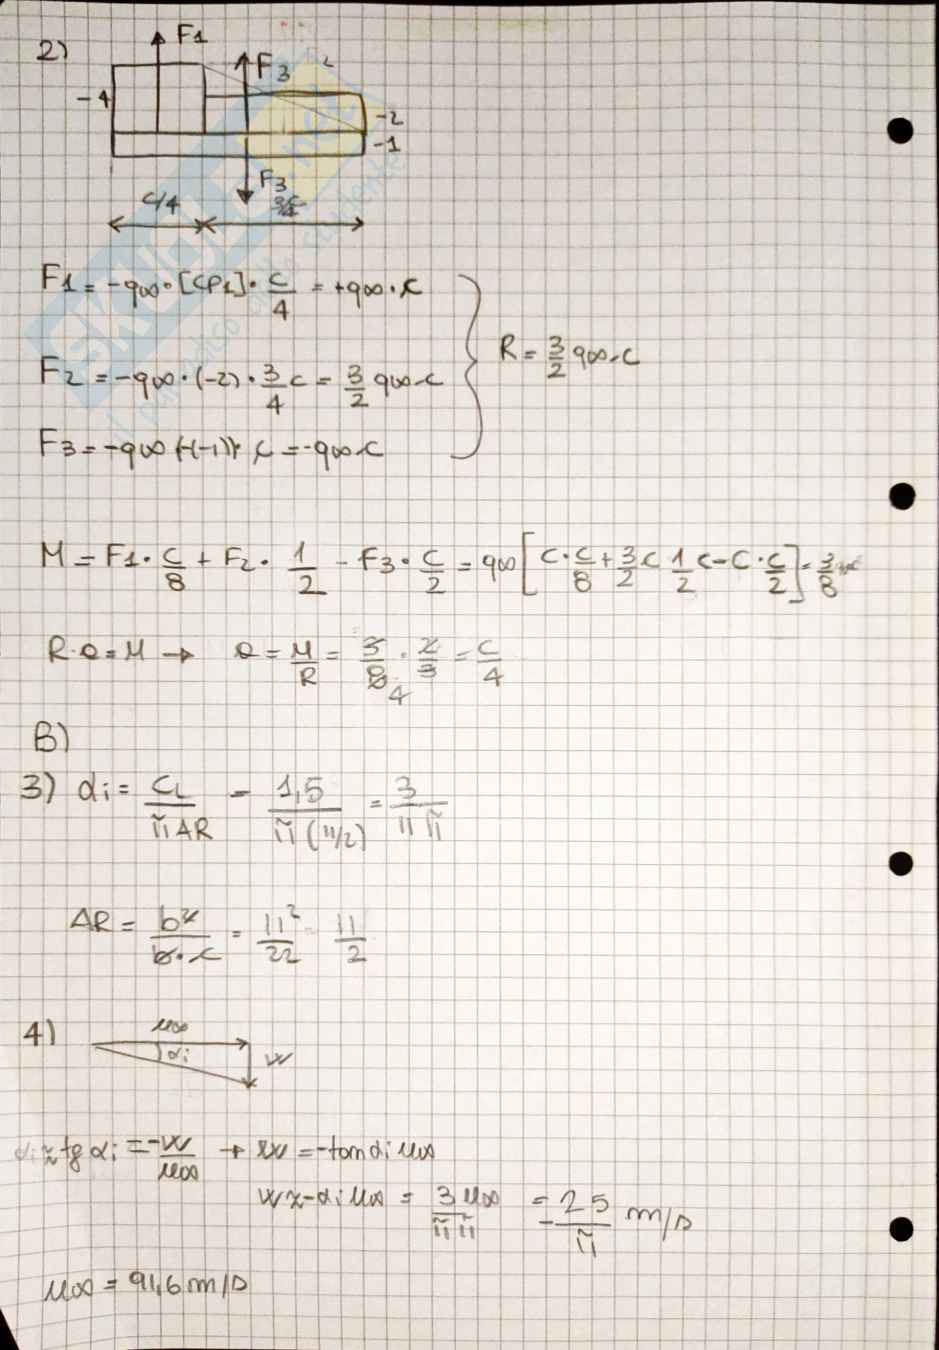 2)
F1
F3
-4
-2
-1
F3
C/4
F1 = -q∞ · [CP1] · C/4 = +q∞ · C
F2 = -q∞ · (-2) · 3/4 C = 3/2 q∞ · C
R = 3/2 q∞ · C
F3 = -q∞ (-(-1)) · C = -q∞ C
M = F1 · C/8 + F2 · 1/2 - F3 · C/2 = q∞ [C · C/8 + 3/2 C 1/2 C - C · C/2] = 3/8
R · a = M → a = M/R = 3/8 · 2/3 = C/4
4
B)
3) αi = CL/(π AR) = 1,5/(π (11/2)) = 3/(11 π)
AR = b²/(b · c) = 11²/22 = 11/2
4)
u∞
αi
w
αi ≈ tg αi = -w/u∞ → w = -tan αi u∞
w ≈ -αi u∞ = 3 u∞/(11 π) = -25/π m/s
u∞ = 91,6 m/s